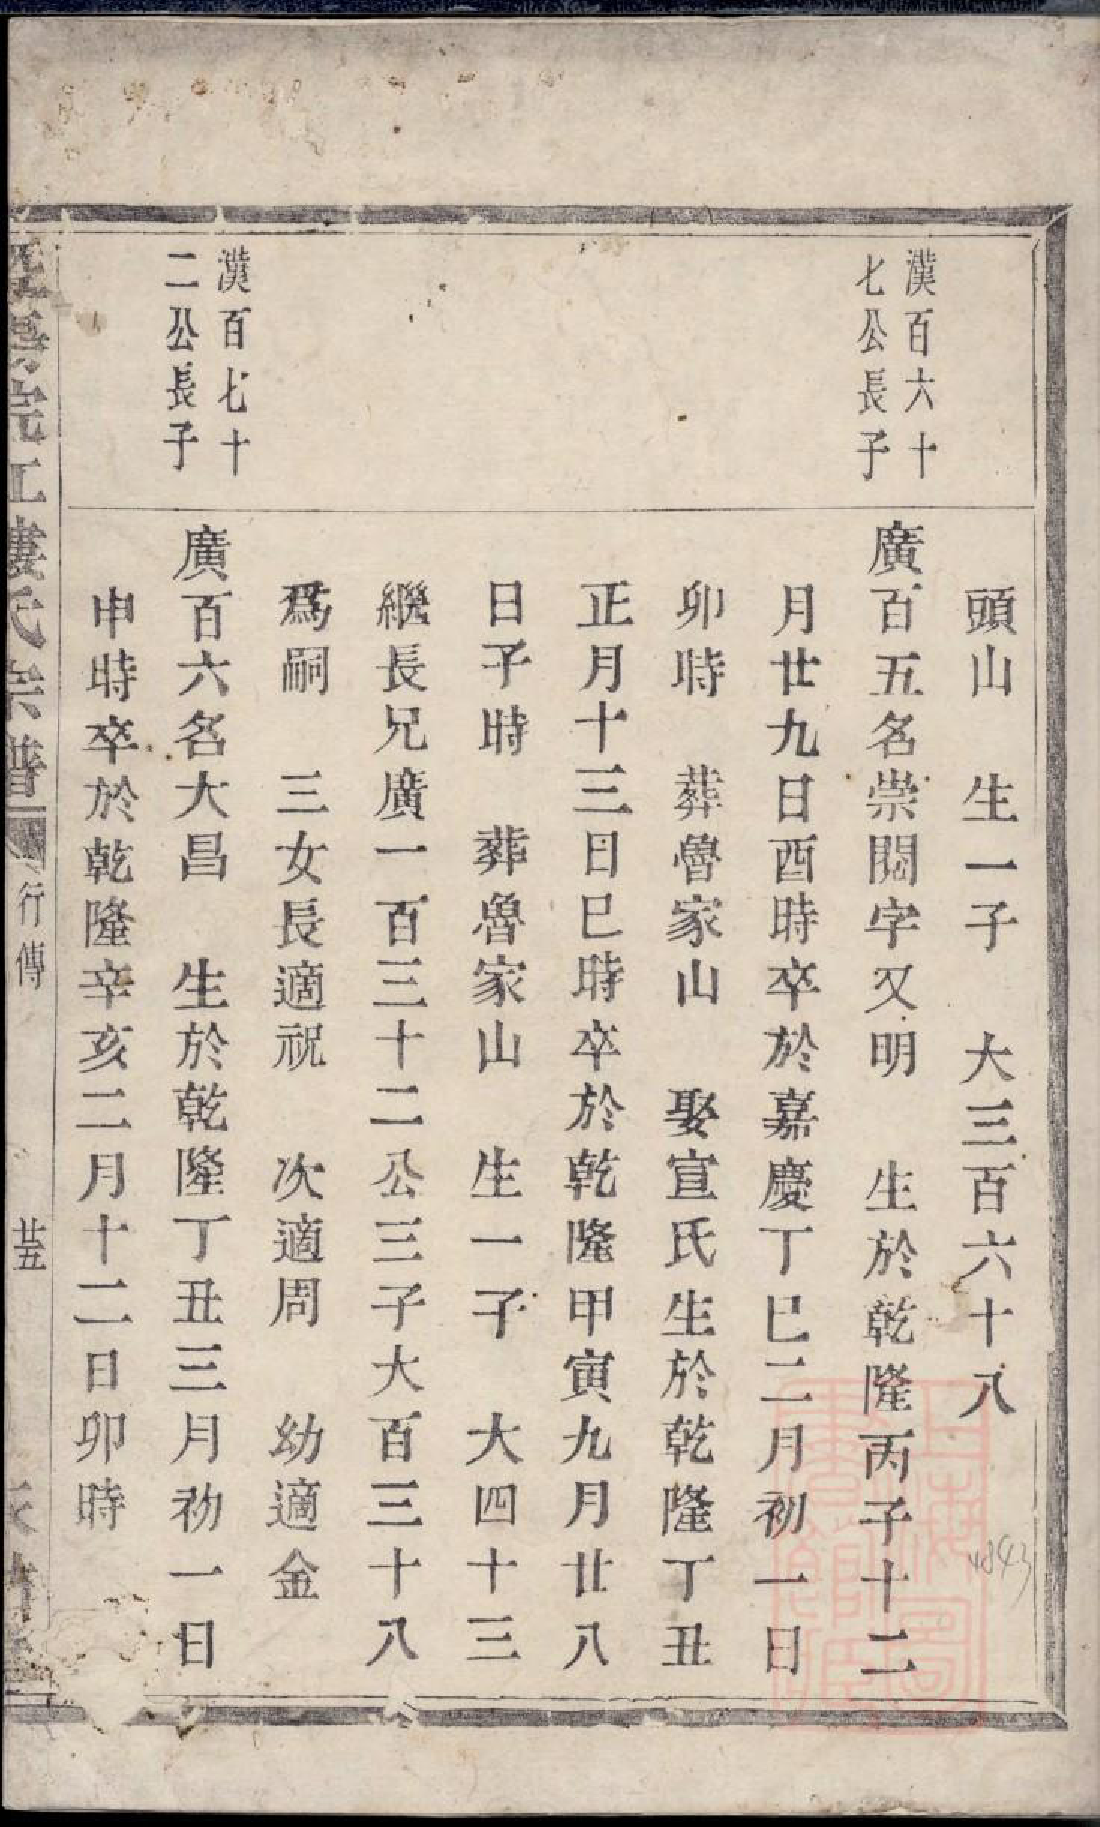 頭山　生一子　大三百六十八
漢百六十
七公長子
廣百五名崇閣字又明　生於乾隆丙子十二
月廿九日酉時卒於嘉慶丁巳二月初一日
卯時　葬魯家山　娶宣氏生於乾隆丁丑
正月十三日巳時卒於乾隆甲寅九月廿八
日子時　葬魯家山　生一子　大四十三
繼長兄廣一百三十二公三子大百三十八
爲嗣　三女長適祝　次適周　幼適金
漢百七十
二公長子
廣百六名大昌　生於乾隆丁丑三月初一日
申時卒於乾隆辛亥二月十二日卯時
江婁氏宗譜
行傳
廿五